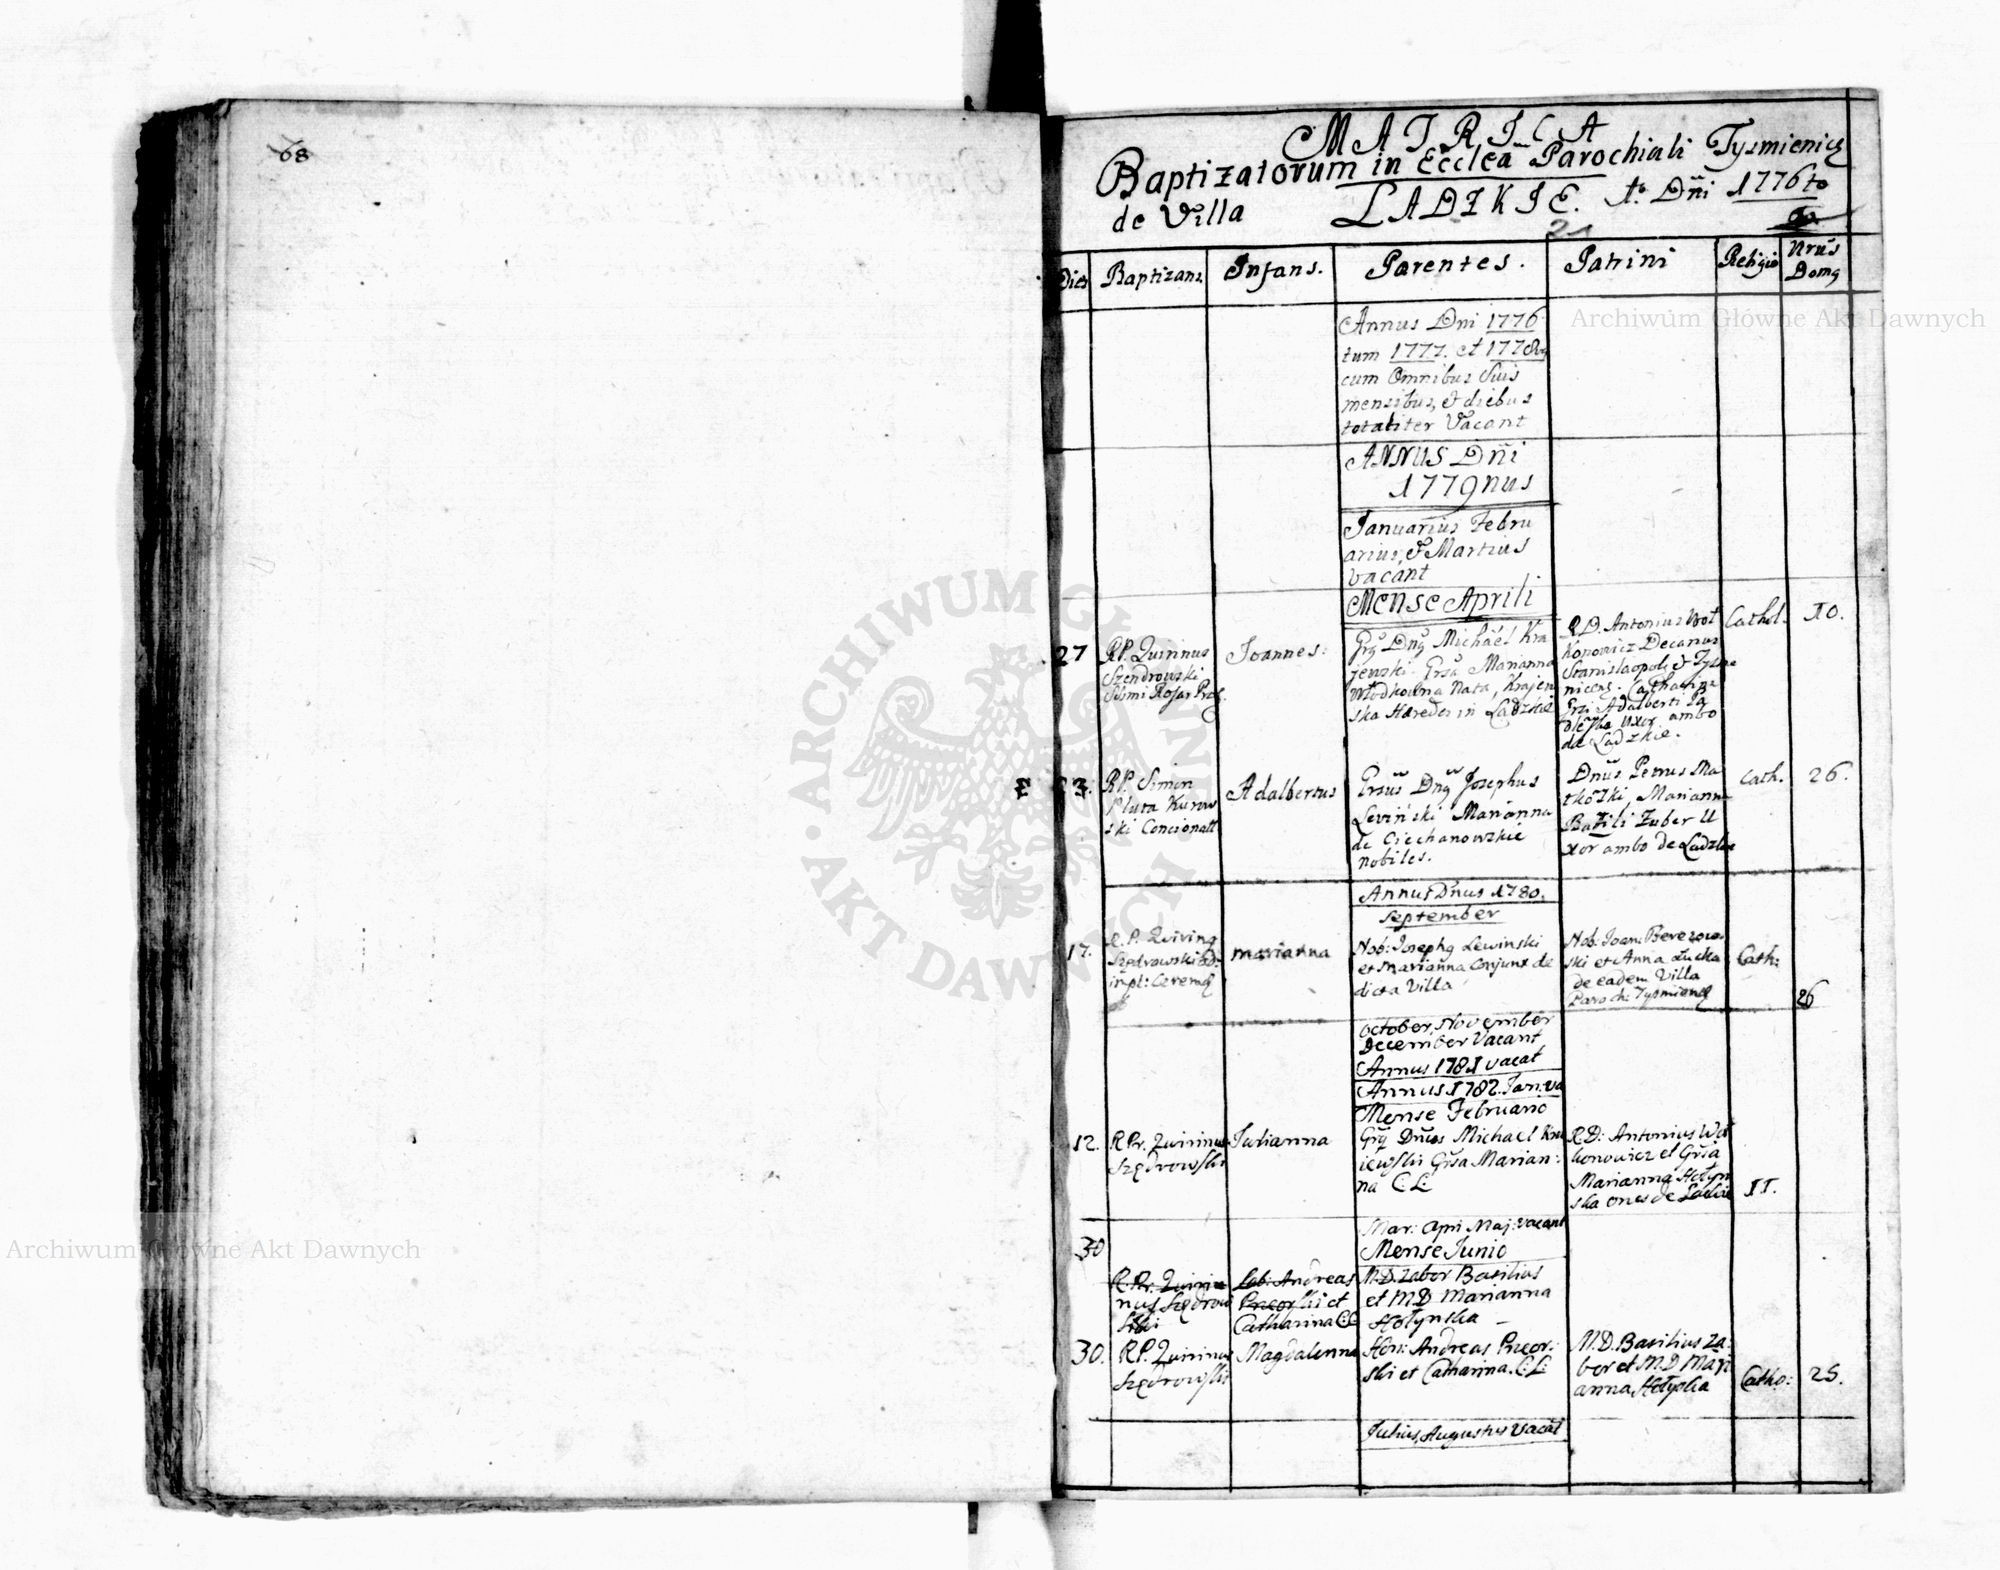 68
MATRICA
Baptizatorum in Ecclea Parochiali Tysmienicz
de Villa LADZKIE. Ao Dñi 1776to
21
Dies Baptizans Infans. Parentes. Patrini Religio Nrus Domq
Annus Dni 1776
tum 1777. et 1778vq
cum Omnibus Suis
mensibus, & diebus
totaliter Vacant
ANNUS Dñi
1779nus
Januarius Febru
arius, & Martius
vacant
Mense Aprili
27
RP. Quirinus
Szendrowski
Joannes.
Grq Dnq Michael Kra
jewski Grsa Marianna
Nata, Krajew
ska Hæredes in Ladzkie
R.D. Antonius Woł
konowicz Decanus
Stanislaopol. & Tysme
nicens. Catharina
Grsi Adalberti
Uxor ambo
de Ladzkie.
Cathol.
10.
23.
RP. Simon
Pluta Kurow
ski Concionatt
Adalbertus
Grsus Dnq Josephus
Leviński Marianna
de Ciechanowzkie
nobiles.
Dnus Petrus Ma
Marianna
Bazili Zuber U
xor ambo de Ladzkie
Cath.
26.
Annus Dnus 1780.
September
17.
R. P. Quirinq
Szędrowski
marianna
Nob: Josephq Lewinski
et Marianna Conjunx de
dicta Villa
Nob: Joan: Berezow
ski et Anna
de eadem Villa
Paroch: Tysmienq
Cath:
26
October, November
December Vacant
Annus 1781 vacat
Annus 1782. Jan: va
Mense Februario
12.
R Pr. Quirinus
Szędrowski
Julianna
Grq Dnus Michael Kra
iewski Grsa Marian:
na C: L:
R.D: Antonius Woł
konowicz et Grsa
Marianna Hołyn
ska ones de Ladzkie
II.
Mar: Apri Maj: vacant
Mense Junio
30
R. Pr. Quiri
nus Szędrow
ski
Lab: Andreas
Pregorski et
Catharina C:L
M.D. Zabor Basilius
et MD Marianna
Hołynska
30.
RP. Quirinus
Szędrowski
Magdalenna
Hon: Andreas Pregor:
ski et Catharina. C: L:
M.D. Basilius Za:
bor et M.D Mari
anna Hołyska
Catho:
25.
Julius, Augustus Vacat
Archiwum Główne Akt Dawnych
Archiwum Główne Akt Dawnych
ARCHIWUM GŁÓWNE AKT DAWNYCH